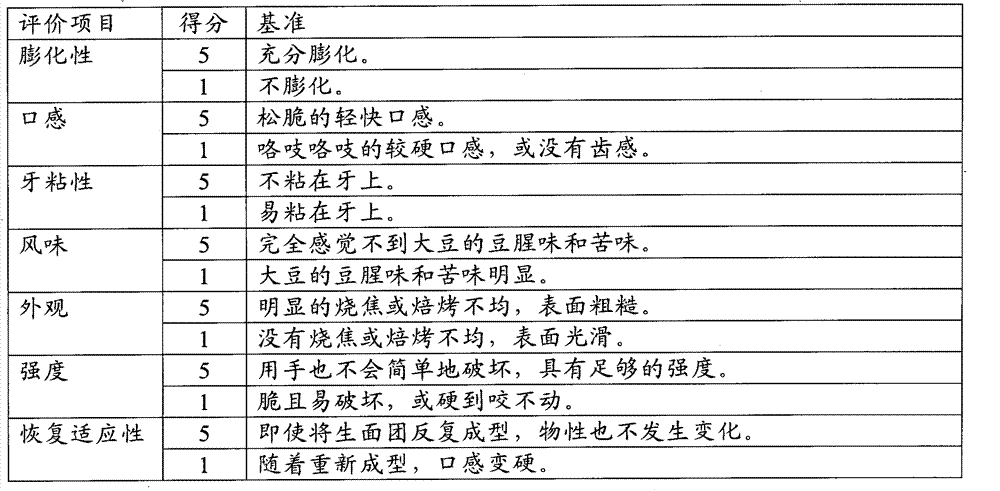 评价项目 得分 基准
膨化性 5 充分膨化。
1 不膨化。
口感 5 松脆的轻快口感。
1 咯吱咯吱的较硬口感，或没有齿感。
牙粘性 5 不粘在牙上。
1 易粘在牙上。
风味 5 完全感觉不到大豆的豆腥味和苦味。
1 大豆的豆腥味和苦味明显。
外观 5 明显的烧焦或焙烤不均，表面粗糙。
1 没有烧焦或焙烤不均，表面光滑。
强度 5 用手也不会简单地破坏，具有足够的强度。
1 脆且易破坏，或硬到咬不动。
恢复适应性 5 即使将生面团反复成型，物性也不发生变化。
1 随着重新成型，口感变硬。